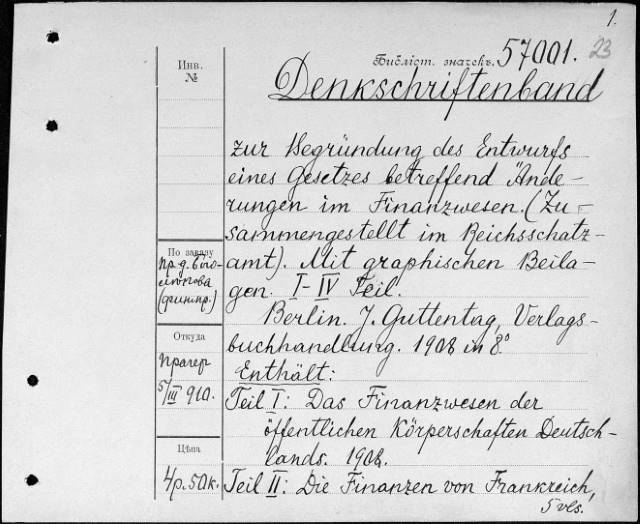 1.
Библіот. значекъ. 57001. 23
Denkschriftenband
zur Begründung des Entwurfs
eines Gesetzes betreffend Ände-
rungen im Finanzwesen. (Zu-
sammengestellt im Reichsschatz-
amt). Mit graphischen Beila-
gen. I-IV Teil.
Berlin. J. Guttentag, Verlags-
buchhandlung. 1908 in 8°
Enthält:
Teil I: Das Finanzwesen der
öffentlichen Körperschaften Deutsch-
lands. 1908.
Teil II: Die Finanzen von Frankreich,
5 vls.
Инв.
№
По заказу
пр. д.
(фин. пр.)
Откуда
Прагер
5/III 910.
Цѣна
4 р. 50 к.